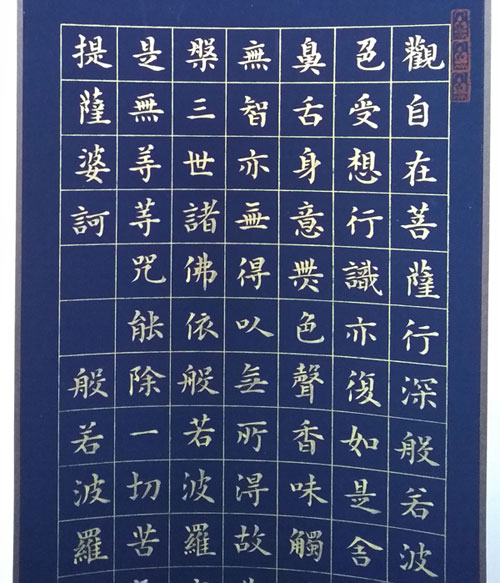 觀自在菩薩行深般若波
色受想行識亦復如是舍
鼻舌身意無色聲香味觸
無智亦無得以無所得故
槃三世諸佛依般若波羅
是無等等咒能除一切苦
提薩婆訶 般若波羅